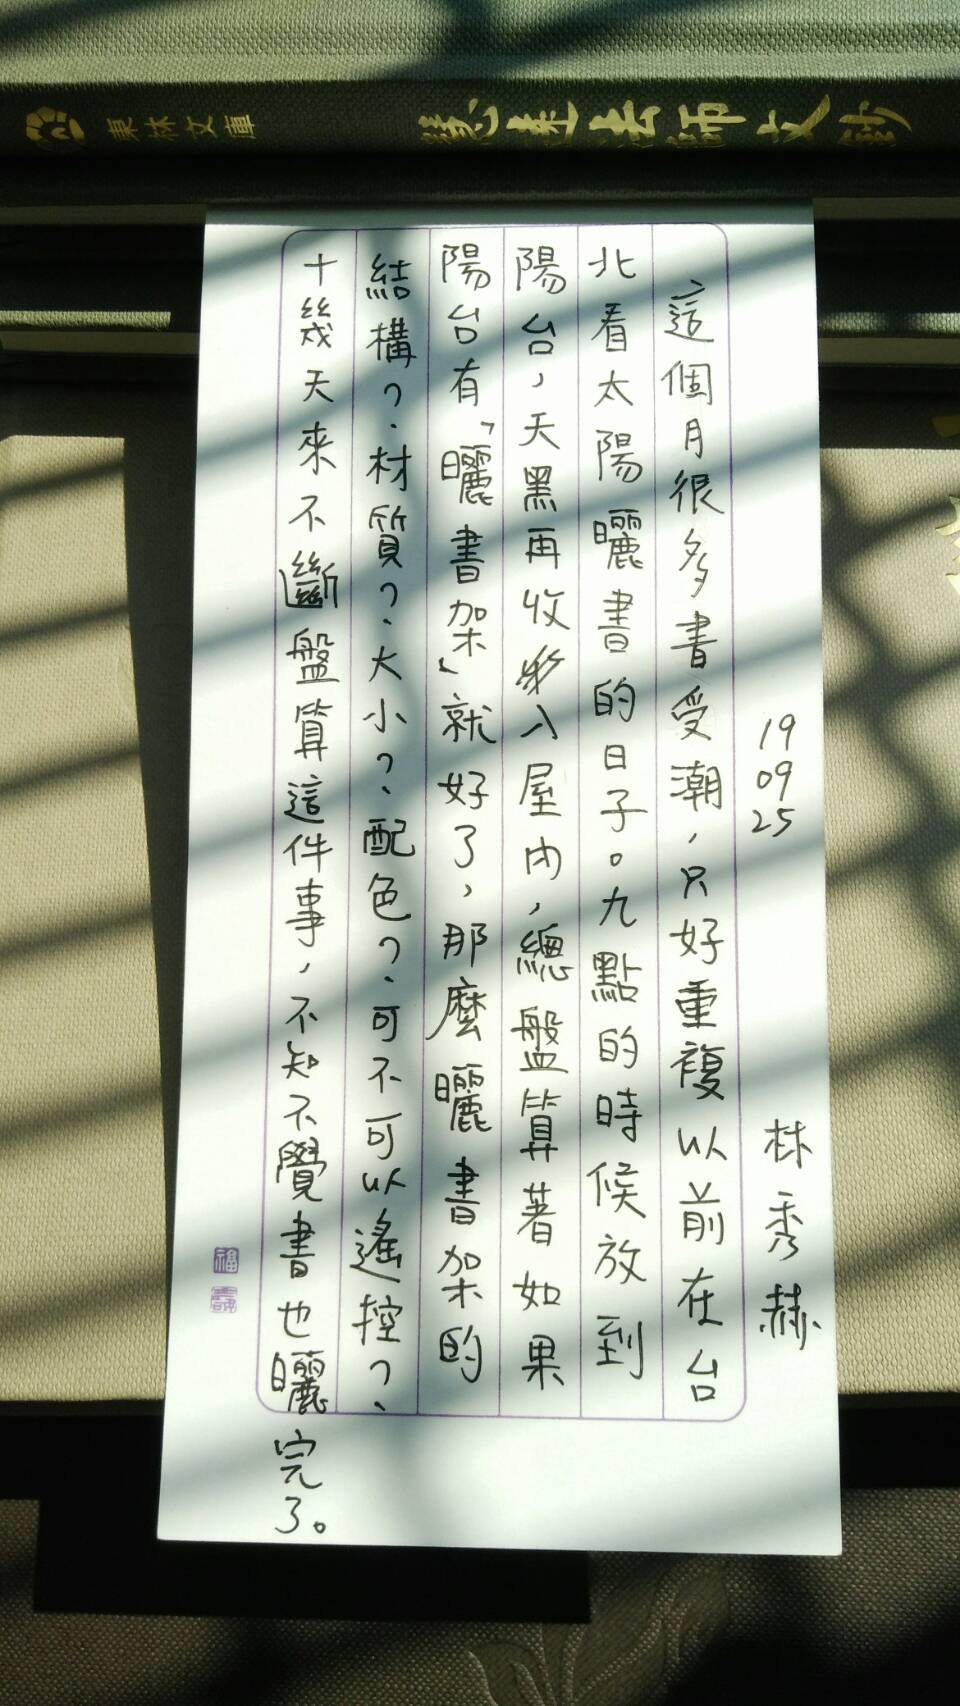 東林文庫
慧遠法師文鈔
19
09
25
林秀赫
這個月很多書受潮，只好重複以前在台
北看太陽曬書的日子。九點的時候放到
陽台，天黑再收入屋內，總盤算著如果
陽台有「曬書架」就好了，那麼曬書架的
結構？材質？大小？配色？可不可以遙控？
十幾天來不斷盤算這件事，不知不覺書也曬完了。
福